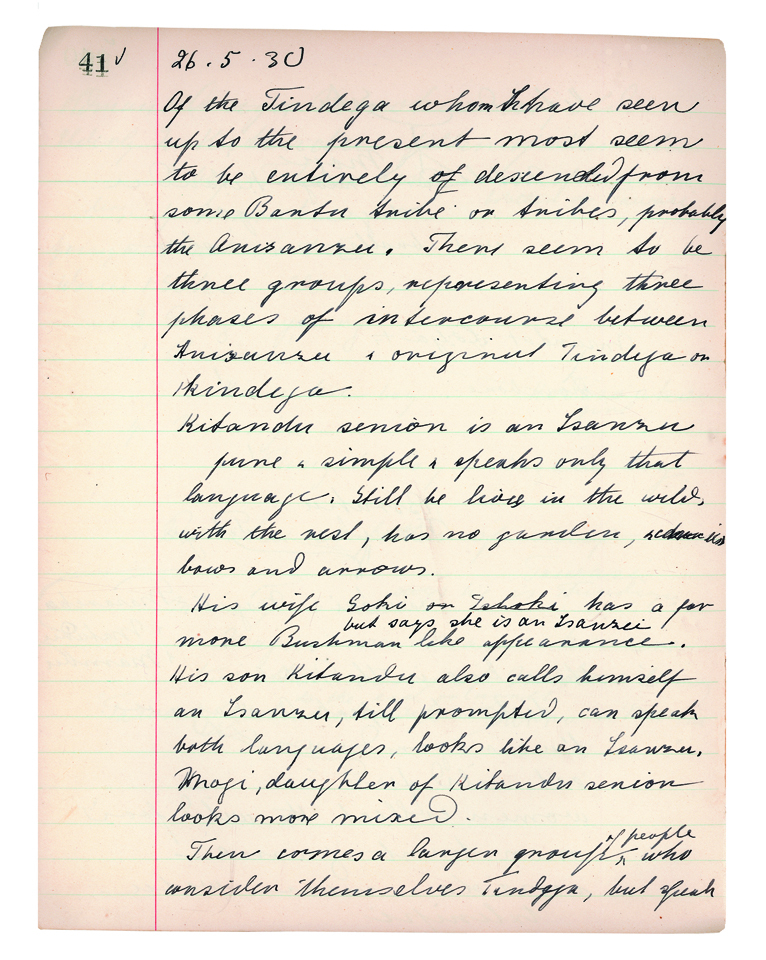 41 √ 26.5.30
Of the Tindega whom I have seen
up to the present most seem
to be entirely of descended from
some Bantu tribe or tribes, probably
the Anizanzu. There seem to be
three groups, representing three
phases of intercourse between
Anizanzu & original Tindega or
Kindega.
Kitandu senior is an Isanzu
pure & simple & speaks only that
language. Still he lives in the wilds
with the rest, has no garden,
bows and arrows.
His wife Goki or Gshoki has a far
but says she is an Isanzei
more Bushman like appearance.
His son Kitandu also calls himself
an Isanzu, till prompted, can speak
both languages, looks like an Isanzu.
Mnagi, daughter of Kitandu senior
looks more mixed.
of people
Then comes a larger group who
consider themselves Tindega, but speak